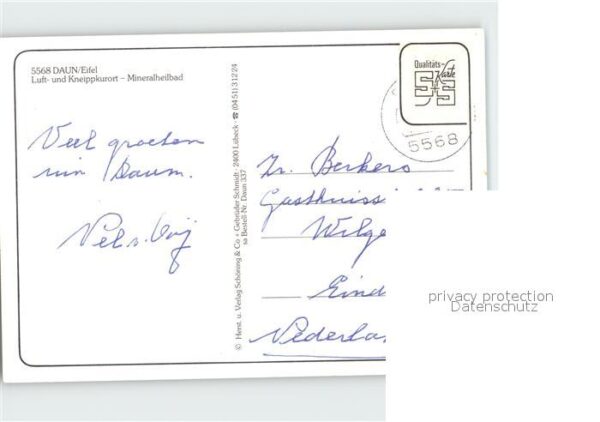 5568 DAUN/Eifel
Luft- und Kneippkurort – Mineralheilbad
Qualitäts-
Karte
S+S
5568
Veel groeten
Daum.
© Herst. u. Verlag Schöning & Co + Gebrüder Schmidt · 2400 Lübeck · ☎ (0451) 31224
sa Bestell-Nr. Daun 337
Zr. Berkers
Gasthuis
Wilge
Eind
Nederla
privacy protection
Datenschutz